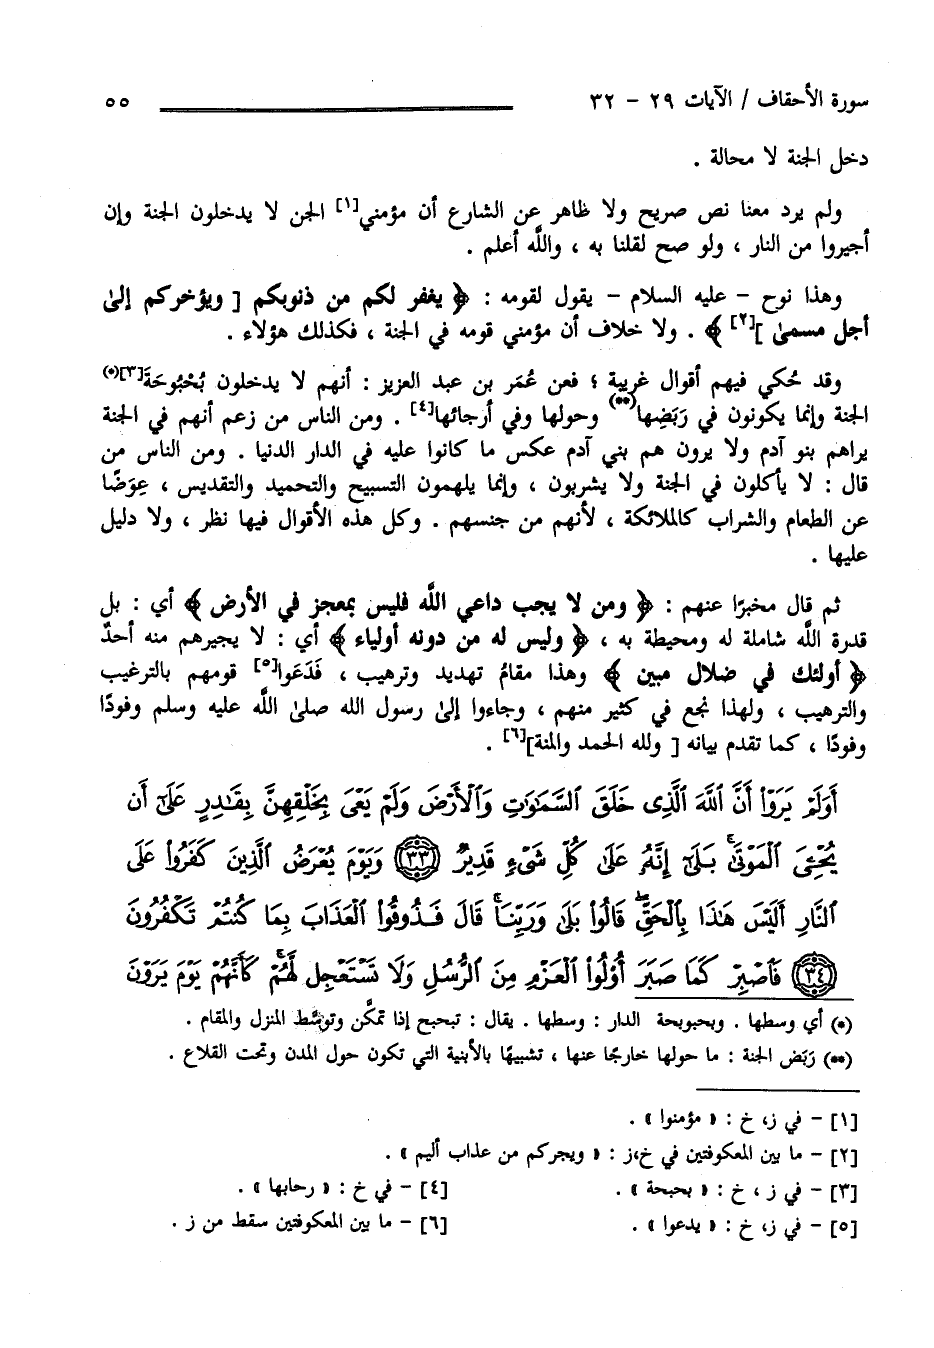 سورة الأحقاف / الآيات ٢٩ - ٣٢ ٥٥
دخل الجنة لا محالة .
ولم يرد معنا نص صريح ولا ظاهر عن الشارع أن مؤمني[١] الجن لا يدخلون الجنة وإن
أجيروا من النار ، ولو صح لقلنا به ، واللَّه أعلم .
وهذا نوح - عليه السلام - يقول لقومه : ﴿ يغفر لكم من ذنوبكم [ ويؤخركم إلىٰ
أجل مسمىٰ ][٢] ﴾ . ولا خلاف أن مؤمني قومه في الجنة ، فكذلك هؤلاء .
وقد حُكي فيهم أقوال غريبة ؛ فعن عُمَر بن عبد العزيز : أنهم لا يدخلون بُحْبُوحَةَ[٣](*)
الجنة وإنما يكونون في رَبَضِها(**) وحولها وفي أرجائها[٤] . ومن الناس من زعم أنهم في الجنة
يراهم بنو آدم ولا يرون هم بني آدم عكس ما كانوا عليه في الدار الدنيا . ومن الناس من
قال : لا يأكلون في الجنة ولا يشربون ، وإنما يلهمون التسبيح والتحميد والتقديس ، عِوَضًا
عن الطعام والشراب كالملائكة ، لأنهم من جنسهم . وكل هذه الأقوال فيها نظر ، ولا دليل
عليها .
ثم قال مخبرًا عنهم : ﴿ ومن لا يجب داعي اللَّه فليس بمعجز في الأرض ﴾ أي : بل
قدرة اللَّه شاملة له ومحيطة به ، ﴿ وليس له من دونه أولياء ﴾ أي : لا يجيرهم منه أحدٌ
﴿ أولئك في ضلال مبين ﴾ وهذا مقامُ تهديد وترهيب ، فَدَعَوا[٥] قومهم بالترغيب
والترهيب ، ولهذا نجع في كثير منهم ، وجاءوا إلىٰ رسول الله صلىٰ اللَّه عليه وسلم وفودًا
وفودًا ، كما تقدم بيانه [ ولله الحمد والمنة][٦] .
أَوَلَمْ يَرَوْا۟ أَنَّ ٱللَّهَ ٱلَّذِى خَلَقَ ٱلسَّمَٰوَٰتِ وَٱلْأَرْضَ وَلَمْ يَعْىَ بِخَلْقِهِنَّ بِقَٰدِرٍ عَلَىٰٓ أَن
يُحْـِۧىَ ٱلْمَوْتَىٰ ۚ بَلَىٰٓ إِنَّهُۥ عَلَىٰ كُلِّ شَىْءٍ قَدِيرٌ ﴿٣٣﴾ وَيَوْمَ يُعْرَضُ ٱلَّذِينَ كَفَرُوا۟ عَلَى
ٱلنَّارِ أَلَيْسَ هَٰذَا بِٱلْحَقِّ ۖ قَالُوا۟ بَلَىٰ وَرَبِّنَا ۚ قَالَ فَذُوقُوا۟ ٱلْعَذَابَ بِمَا كُنتُمْ تَكْفُرُونَ
﴿٣٤﴾ فَٱصْبِرْ كَمَا صَبَرَ أُو۟لُوا۟ ٱلْعَزْمِ مِنَ ٱلرُّسُلِ وَلَا تَسْتَعْجِل لَّهُمْ ۚ كَأَنَّهُمْ يَوْمَ يَرَوْنَ
(*) أي وسطها . وبحبوبحة الدار : وسطها . يقال : تبحبح إذا تمكَّن وتوسَّط المنزل والمقام .
(**) رَبَض الجنة : ما حولها خارجًا عنها ، تشبيهًا بالأبنية التي تكون حول المدن وتحت القلاع .
[١] - في ز، خ : « مؤمنوا » .
[٢] - ما بين المعكوفتين في خ،ز : « ويجركم من عذاب أليم » .
[٣] - في ز ، خ : « بحبحة » . [٤] - في خ : « رحابها » .
[٥] - في ز، خ : « يدعوا » . [٦] - ما بين المعكوفتين سقط من ز .